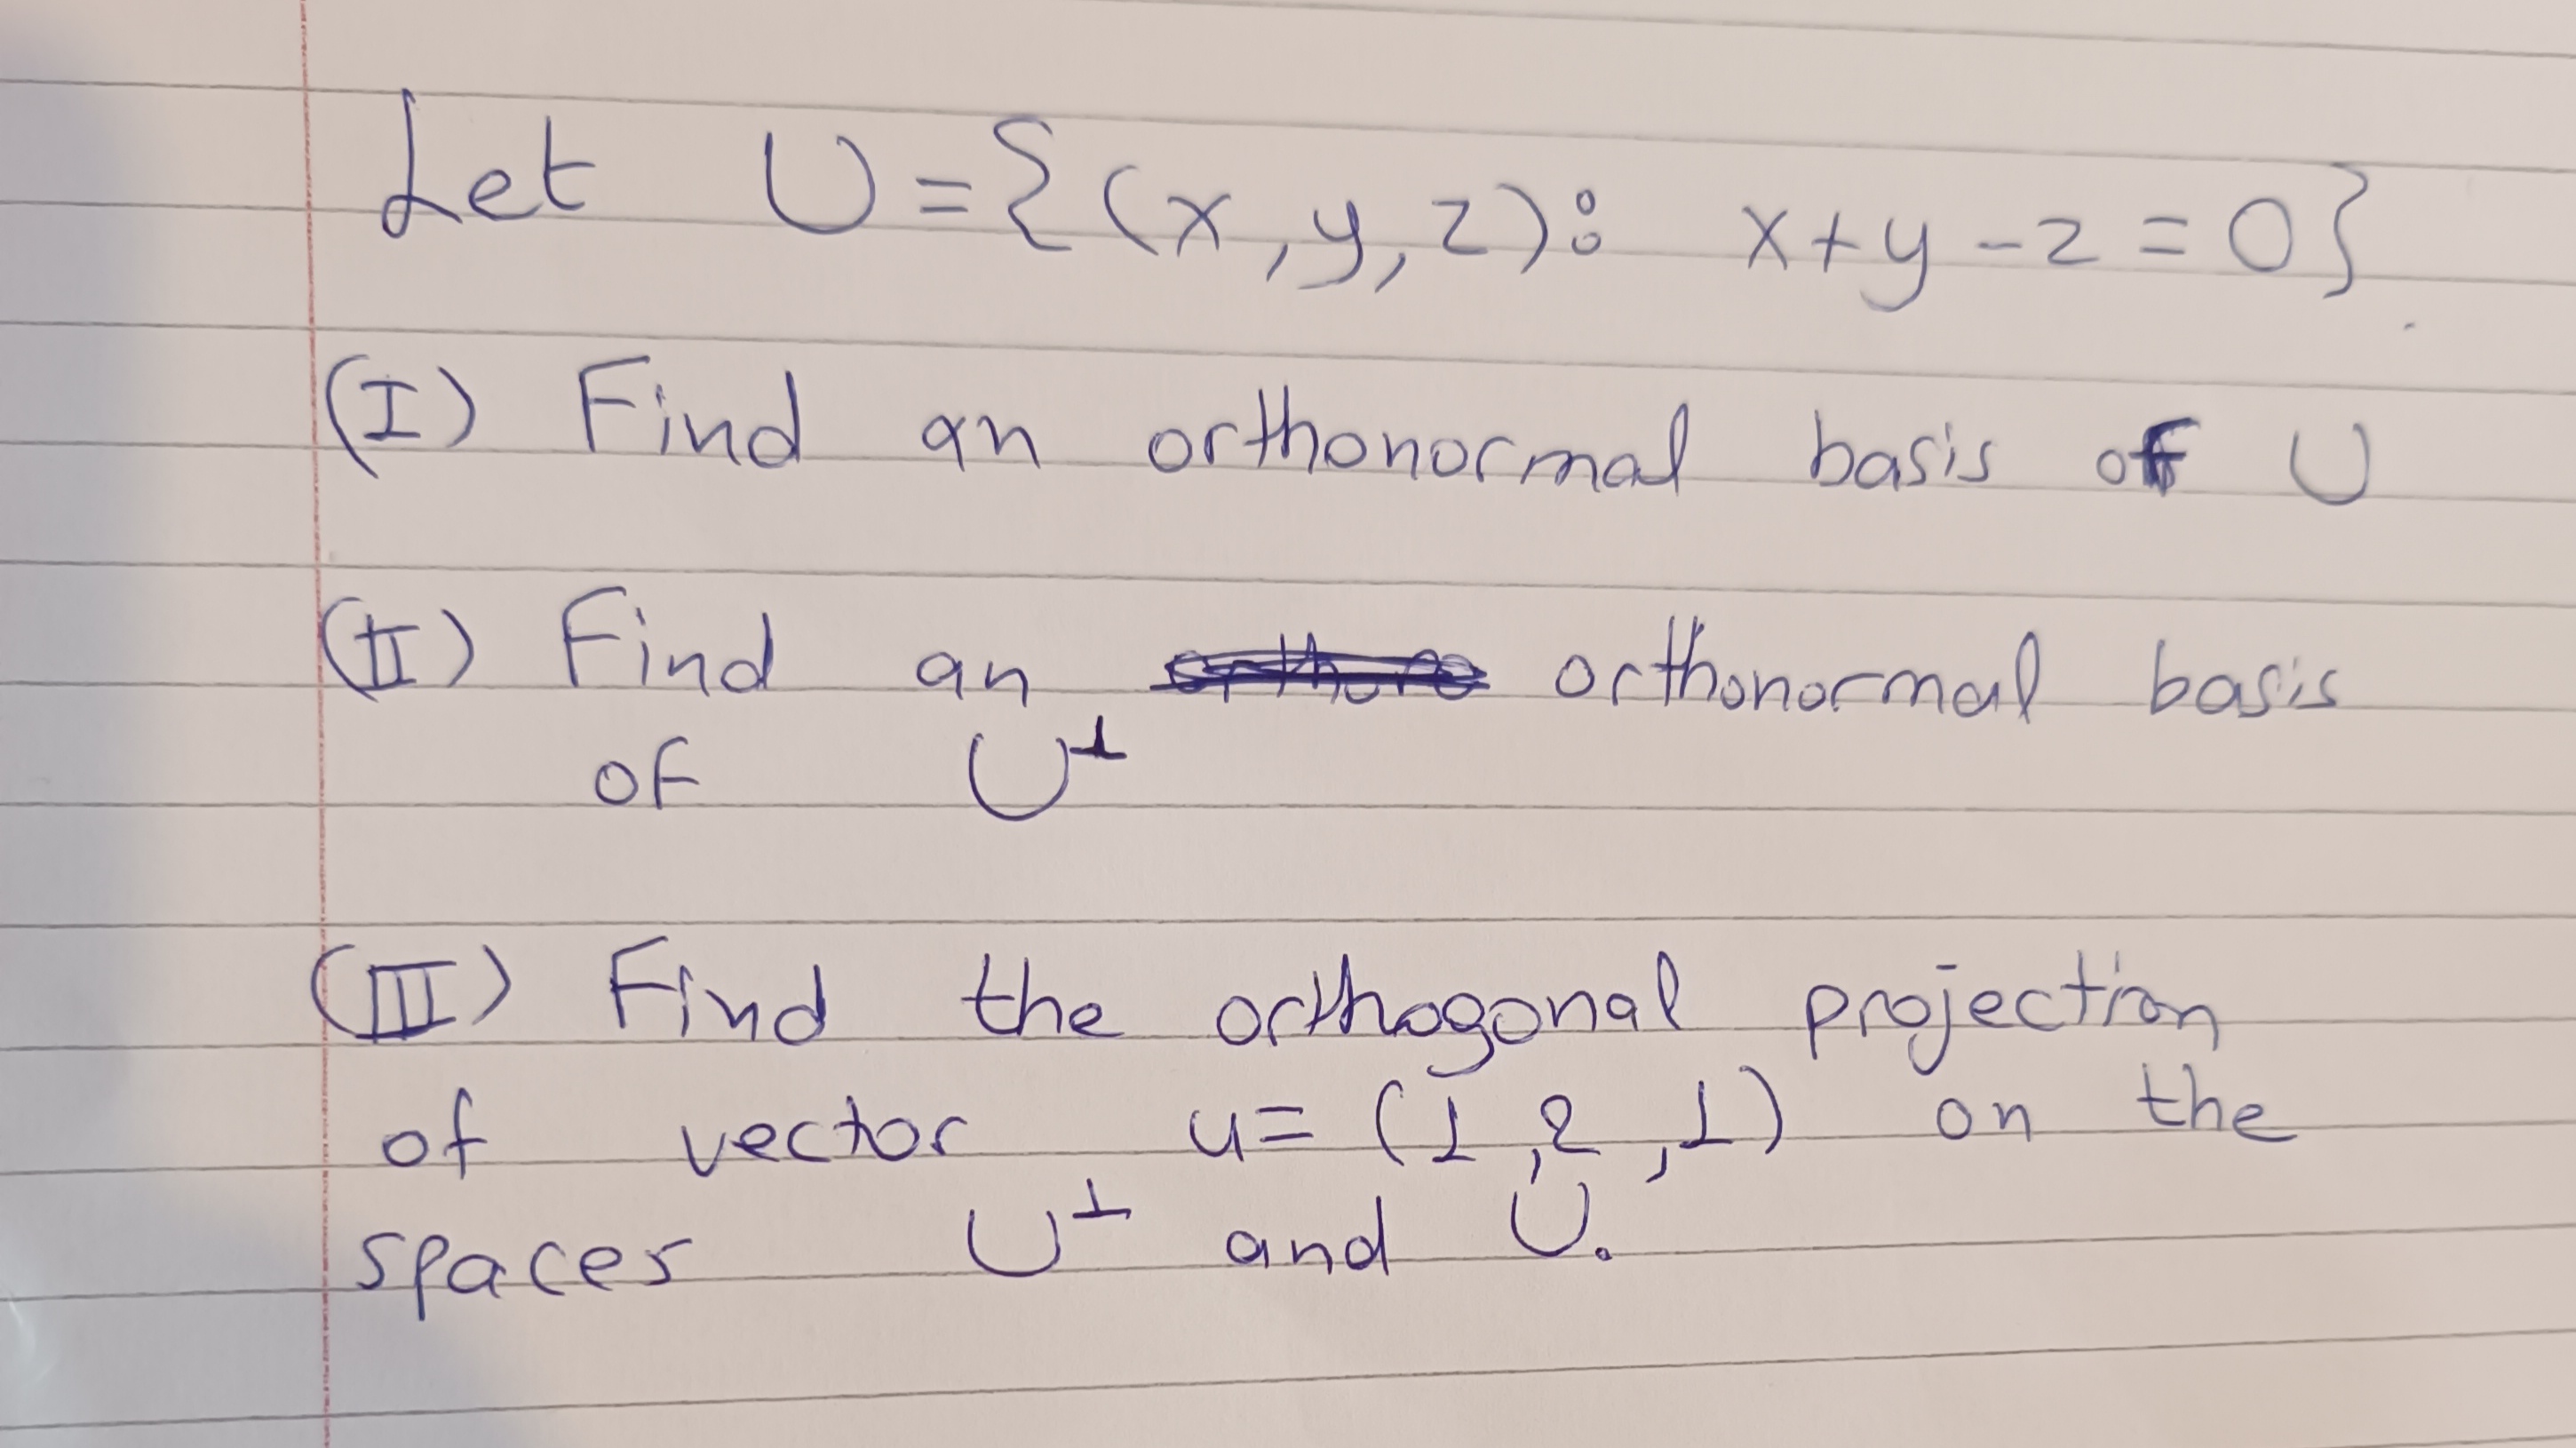 Let U={(x,y,z): x+y-z=0}.
(I) Find an orthonormal basis of U
(II) Find an orthonormal basis
of U⊥
(III) Find the orthogonal projection
of vector u=(1,2,1) on the
spaces U⊥ and U.